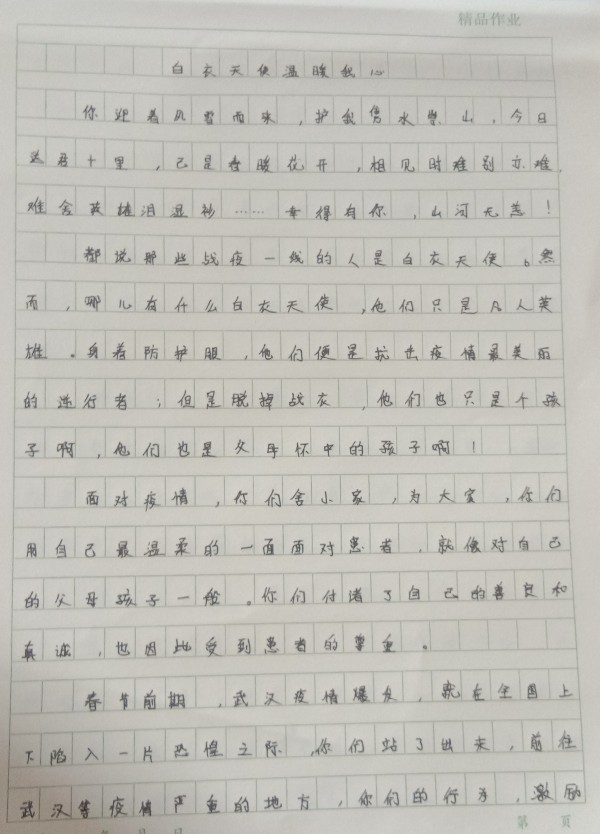 精品作业
白衣天使温暖我心
你迎着风雪而来，护我秀水巍山，今日
送君十里，已是春暖花开，相见时难别亦难，
难舍英雄泪湿衫……幸得有你，山河无恙！
都说那些战疫一线的人是白衣天使。然
而，哪儿有什么白衣天使，他们只是凡人英
雄。身着防护服，他们便是抗击疫情最美丽
的逆行者；但是脱掉战衣，他们也只是个孩
子啊，他们也是父母怀中的孩子啊！
面对疫情，你们舍小家，为大家，你们
用自己最温柔的一面面对患者，就像对自己
的父母孩子一般。你们付诸了自己的善良和
真诚，也因此受到患者的尊重。
春节前期，武汉疫情爆发，就在全国上
下陷入一片恐惶之际，你们站了出来，前往
武汉等疫情严重的地方，你们的行为，激励
年 月 日
第 页